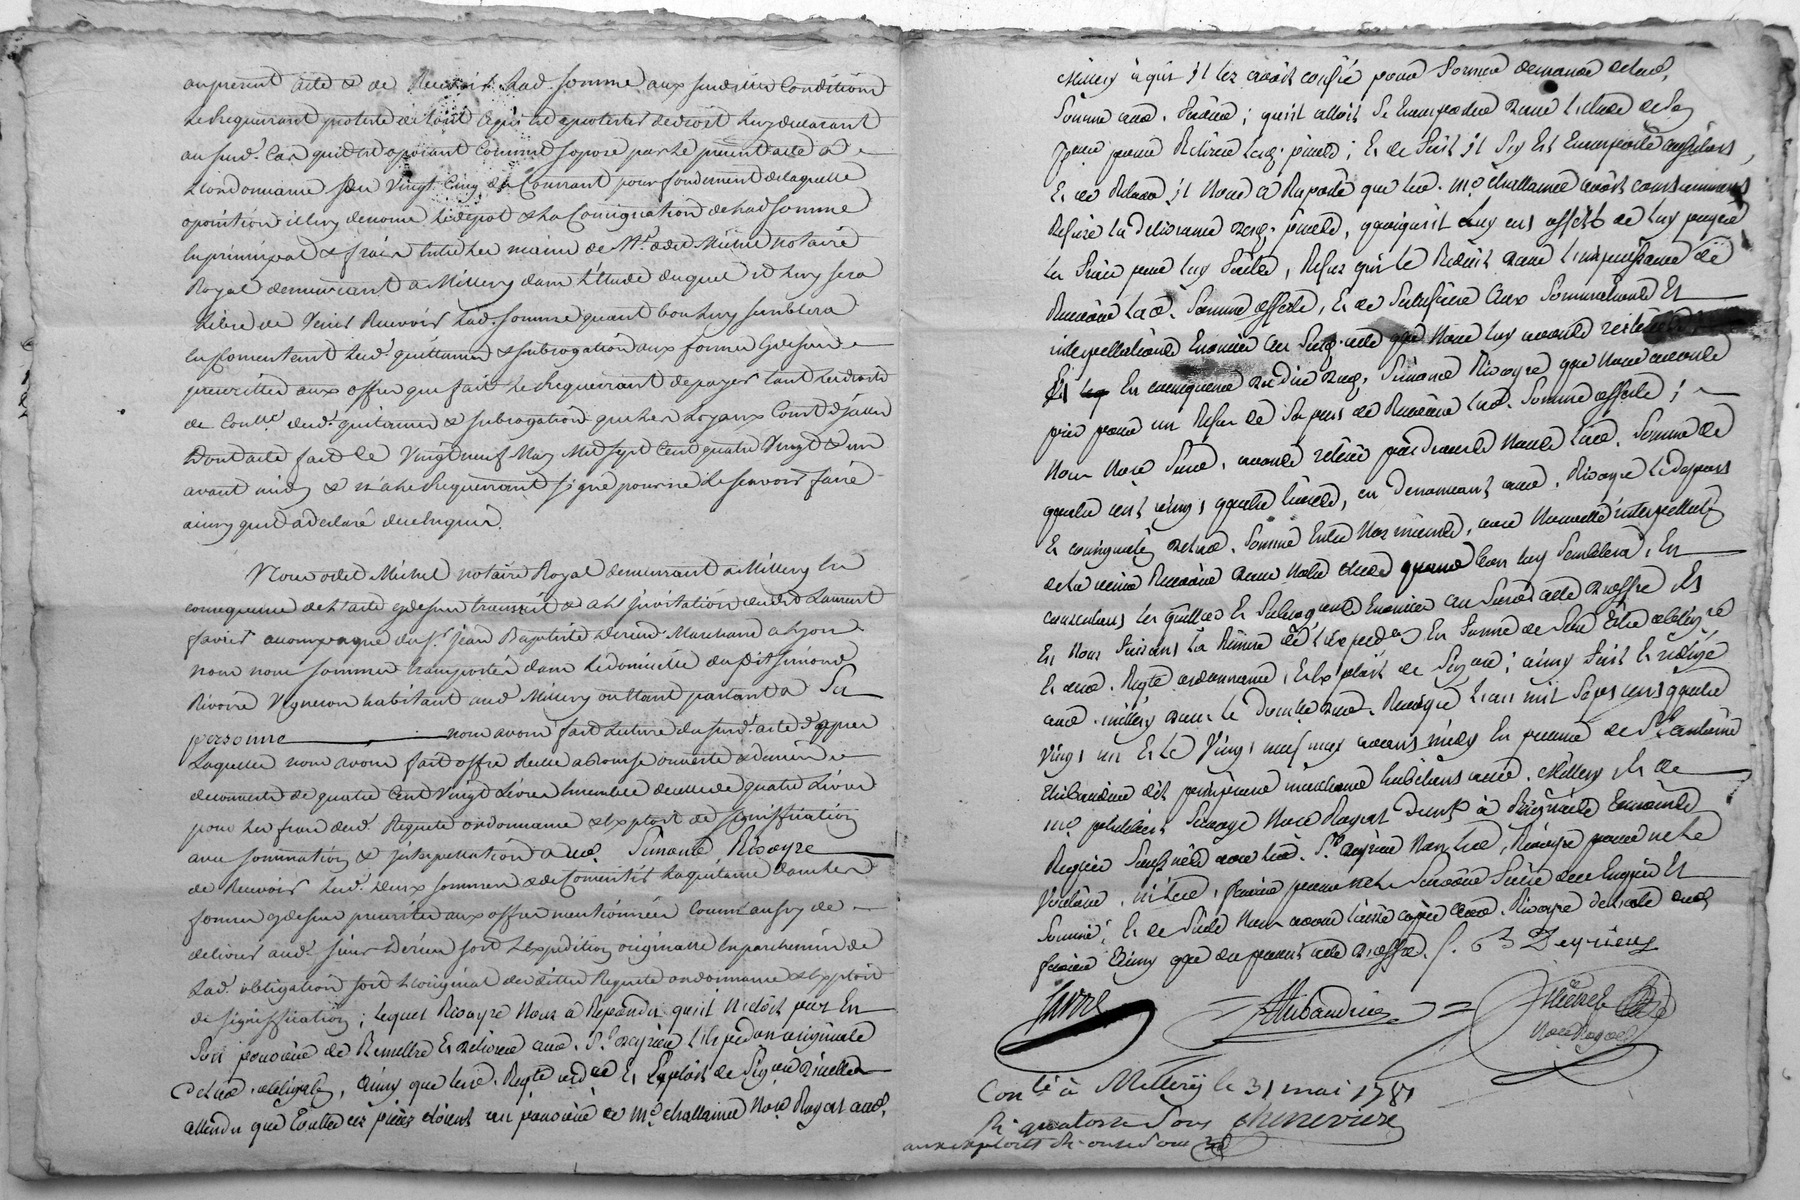 au present acte & de Recevoir lad. somme aux susdites Conditions
le Requerant proteste de tout ce qui est a protester de droit luy declarant
au susd. Cas qu'il est oposant comme s'opose par le present acte a
l'ordonnance du Vingt Cinq du Courrant pour fondement de laquelle
oposition il luy denonce le depot & la Consignation de lad somme
en principal & frais entre les mains de Mr. odet Michel notaire
Royal demeurant a Millery dans l'Etude duquel il luy sera
libre de Venir Recevoir lad. somme quant bon luy semblera
en Consentant lesd. quittances & subrogation aux formes Cy dessus
prescrittes aux offres que fait le Requerant de payer tant les droits
de Conlle desd. quitances & subrogation que les Loyaux Couts d'jceux
Dont acte fait le Vingt neuf May Mil sept Cent quatre Vingt & un
avant midy & n'a le Requerant signé pour ne le sçavoir faire
ainsy qu'il a declaré de ce Enquis.
Nous odet Michel notaire Royal demeurant a Millery en
consequence de l'acte cy dessus transcrit & a la jnvitation dudit Laurent
favier accompagné du sr. jean Baptiste Derieu Marchand a Lyon
nous nous sommes transportés dans le domicille dudit simond
Rivoire Vigneron habitant aud. Millery ou etant parlant a Sa
personne nous avons fait lecture du susd. acte d'apres
Laquelle nous avons fait offre Reelle a Bourse ouverte & deniers
decouverts de quatre Cent Vingt Livres Ensemble de celle de quatre Livres
pour les frais desd. Requete ordonnance & Exploit de signiffication
avec sommation & jnterpellation aud. Simond Rivoyre
de Recevoir lesd. deux sommes & de Consentir la quitance dans les
formes cy dessus prescrites aux offres mentionnées Comme aussy de
delivrer aud. sieur Derieu soit l'expedition originalle en parchemin de
lad. obligation soit l'original desdittes Requete ordonnance & Exploit
de signiffication ; lequel Rivoyre Nous a Repondu qu'il n'etoit pas En
Son pouvoir de Remettre Et delivrer aud. Sr. deyrieu l'expedon originale
de lad. obligaon, ainsy que lesd. Reqte ordce Et Exploit de Sigon d'icelles
attendu que touttes ces pieces etoient au pouvoir de Me challamel Nore Royal aud.
Millery à qui il les avoit confié pour Former demande de lad.
Somme aud. Favier ; qu'il alloit Se transporter dans l'etude de Son
pour Retirer lesd. pieces ; Et de Suit il S'y Est transporté
Et de Retour il Nous a Raporté que led. Me challamel avoit constamment
Refusé la delivrance desd. pieces, quoiqu'il luy eut offert de luy payer
les Frais pour luy faites, Refus qui le Reduit dans l'impuissance de
Recevoir lad. Somme offerte, Et de Satisfaire Aux Sommations Et
interpellations Enoncées au Susd. acte que Nous luy avons reiterées
En consequence du dire dud. Simond Rivoyre que nous avons
pris pour un Refus de Sa part de Recevoir lad. Somme offerte ;
Nous Nore Susd. avons retiré par devers Nous lad. Somme de
quatre cent vingt quatre livres, en denonçant aud. Rivoyre le depost
Et consignaon de lad. Somme Entre Nos mains, avec Nouvelle interpellaon
de la venir Recevoir dans Notre etude quand bon luy Semblera, En
consentant les quittces Et Subrogaons Enoncées au Susd acte d'offre Et
En Nous Faisant la Remise de l'expedon En Forme de lad
Et aud. Reqte ordonnance, Et Exploit de Sigon ; ainsy Fait Et redigé
aud. Millery dans le domicille dud. Rivoyre L'an mil Sept cent quatre
Vingt un Et le Vingt neuf may avant midy En presence de Sr. antoine
thibaudier dit marchand habitant aud. Millery Et de
Me philibert Savoye Nore Royal dems. à Temoins
Requis Soussignés avec led. Sr. deyrieu Non led. Rivoyre pour ne le
Vouloir, ni led. favier pour ne le Sçavoir Faire de ce Enquis Et
Sommé ; Et de Suite Nous avons Laissé copie aud. Rivoyre de l'acte dud.
favier Ainsy que du present acte d'offre. J. B Deyrieux
Thibaudier Michel
Nore Royal
Conlé à Millery le 31 mai 1781
Rs. quatorze Sous Chenevière
aux exploits Rs. onze Sous